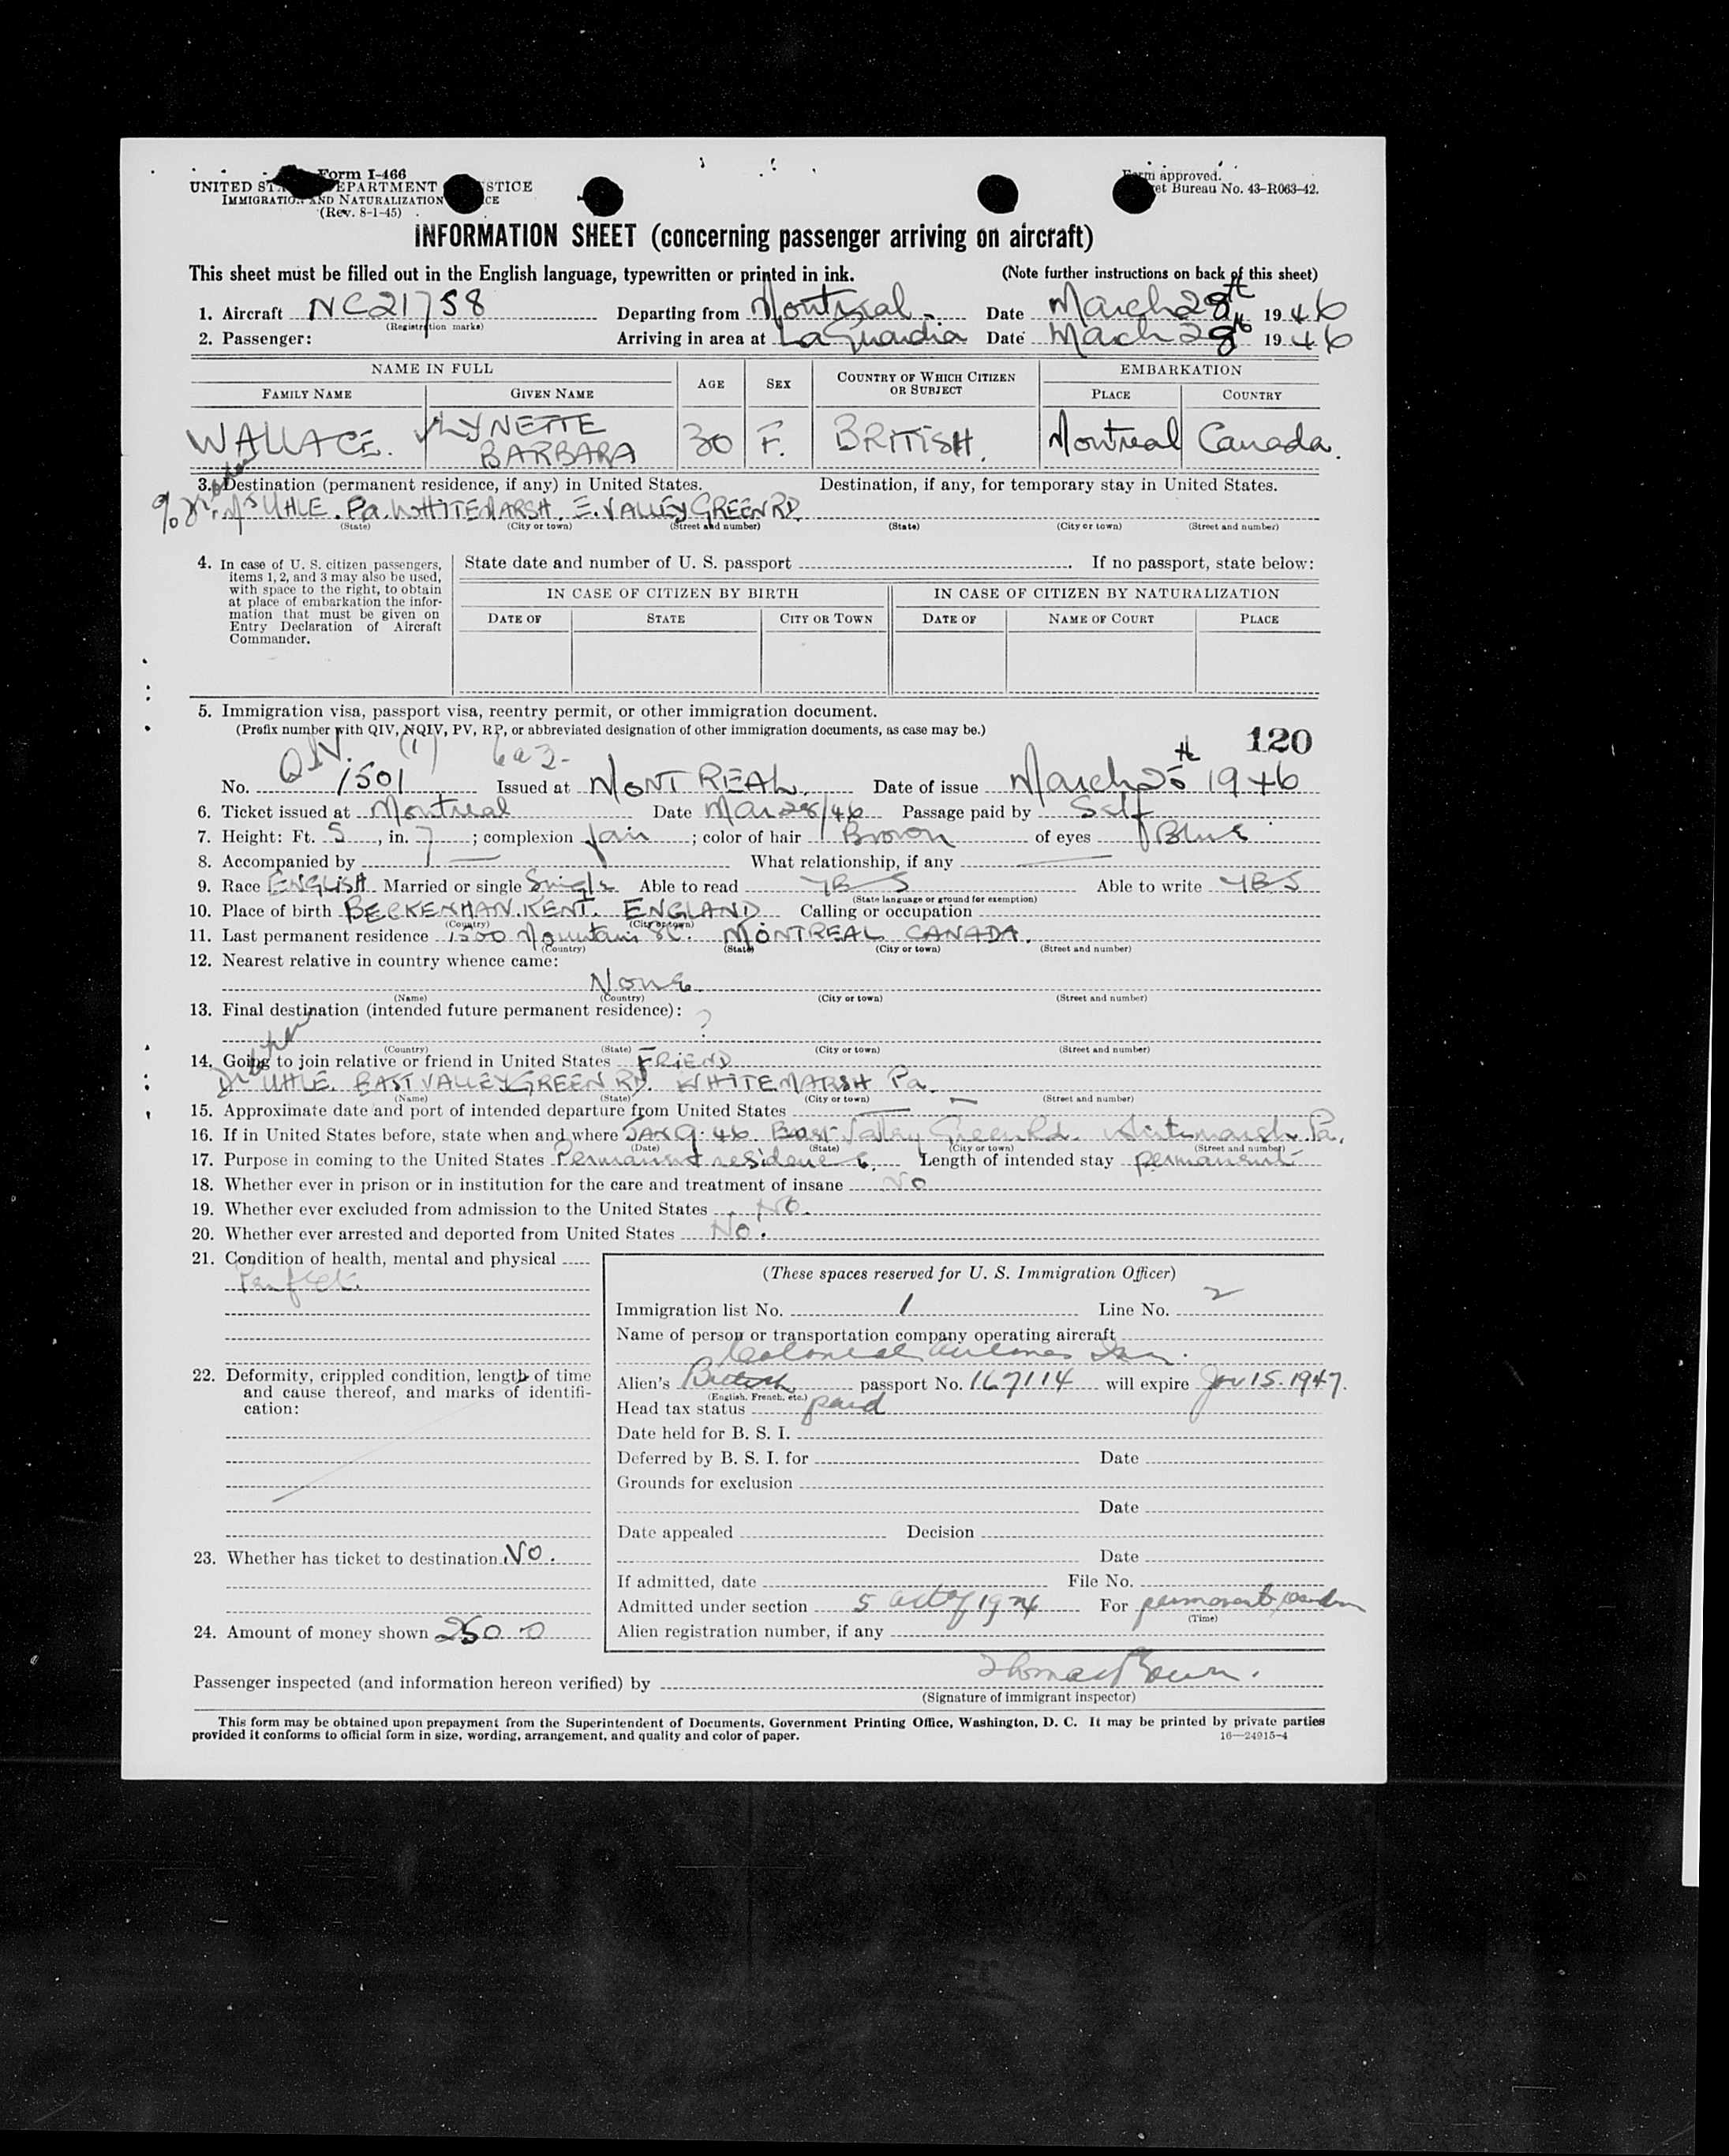 Form I-466
UNITED STATES DEPARTMENT JUSTICE
IMMIGRATION AND NATURALIZATION SERVICE
(Rev. 8-1-45)
Form approved.
Budget Bureau No. 43-R063-42.
INFORMATION SHEET (concerning passenger arriving on aircraft)
This sheet must be filled out in the English language, typewritten or printed in ink. (Note further instructions on back of this sheet)
1. Aircraft NC21758 Departing from Montreal Date March 28th 1946
(Registration marks)
2. Passenger: Arriving in area at La Guardia Date March 28th 1946
NAME IN FULL AGE SEX COUNTRY OF WHICH CITIZEN OR SUBJECT EMBARKATION
FAMILY NAME GIVEN NAME PLACE COUNTRY
WALLACE. LYNETTE BARBARA 30 F. BRITISH. Montreal Canada.
3. Destination (permanent residence, if any) in United States. Destination, if any, for temporary stay in United States.
UHLE. Pa. WHITEMARSH. E. VALLEY GREEN RD.
(State) (City or town) (Street and number) (State) (City or town) (Street and number)
4. In case of U. S. citizen passengers, items 1, 2, and 3 may also be used, with space to the right, to obtain at place of embarkation the information that must be given on Entry Declaration of Aircraft Commander.
State date and number of U. S. passport If no passport, state below:
IN CASE OF CITIZEN BY BIRTH IN CASE OF CITIZEN BY NATURALIZATION
DATE OF STATE CITY OR TOWN DATE OF NAME OF COURT PLACE
5. Immigration visa, passport visa, reentry permit, or other immigration document.
(Prefix number with QIV, NQIV, PV, RP, or abbreviated designation of other immigration documents, as case may be.) 120
QIV. (1) 6a3-
No. 1501 Issued at MONTREAL. Date of issue March 25th 1946
6. Ticket issued at Montreal Date Mar 28/46 Passage paid by Self
7. Height: Ft. 5, in. 7; complexion fair; color of hair Brown of eyes Blue
8. Accompanied by — What relationship, if any —
9. Race ENGLISH Married or single Single Able to read YES Able to write YES
(State language or ground for exemption)
10. Place of birth BECKENHAM. KENT. ENGLAND Calling or occupation
(Country) (City or town)
11. Last permanent residence 1500 Mountain St. MONTREAL CANADA.
(Country) (State) (City or town) (Street and number)
12. Nearest relative in country whence came:
None.
(Name) (Country) (City or town) (Street and number)
13. Final destination (intended future permanent residence): ?
(Country) (State) (City or town) (Street and number)
14. Going to join relative or friend in United States FRIEND
UHLE. EAST VALLEY GREEN RD. WHITEMARSH Pa.
(Name) (State) (City or town) (Street and number)
15. Approximate date and port of intended departure from United States —
16. If in United States before, state when and where JAN 9. 46. East Valley Green Rd. Whitemarsh Pa.
(Date) (State) (City or town) (Street and number)
17. Purpose in coming to the United States Permanent residence. Length of intended stay permanent
18. Whether ever in prison or in institution for the care and treatment of insane No
19. Whether ever excluded from admission to the United States No.
20. Whether ever arrested and deported from United States No.
21. Condition of health, mental and physical
Perfect.
22. Deformity, crippled condition, length of time and cause thereof, and marks of identification:
23. Whether has ticket to destination No.
24. Amount of money shown 250 0
(These spaces reserved for U. S. Immigration Officer)
Immigration list No. 1 Line No. 2
Name of person or transportation company operating aircraft
Colonial Airlines Inc.
Alien's British passport No. 167114 will expire Jan 15. 1947.
(English, French, etc.)
Head tax status paid
Date held for B. S. I.
Deferred by B. S. I. for Date
Grounds for exclusion
Date
Date appealed Decision
Date
If admitted, date File No.
Admitted under section 5 act of 1924 For permanent
(Time)
Alien registration number, if any
Passenger inspected (and information hereon verified) by Thomas
(Signature of immigrant inspector)
This form may be obtained upon prepayment from the Superintendent of Documents, Government Printing Office, Washington, D. C. It may be printed by private parties
provided it conforms to official form in size, wording, arrangement, and quality and color of paper. 16—24915-4